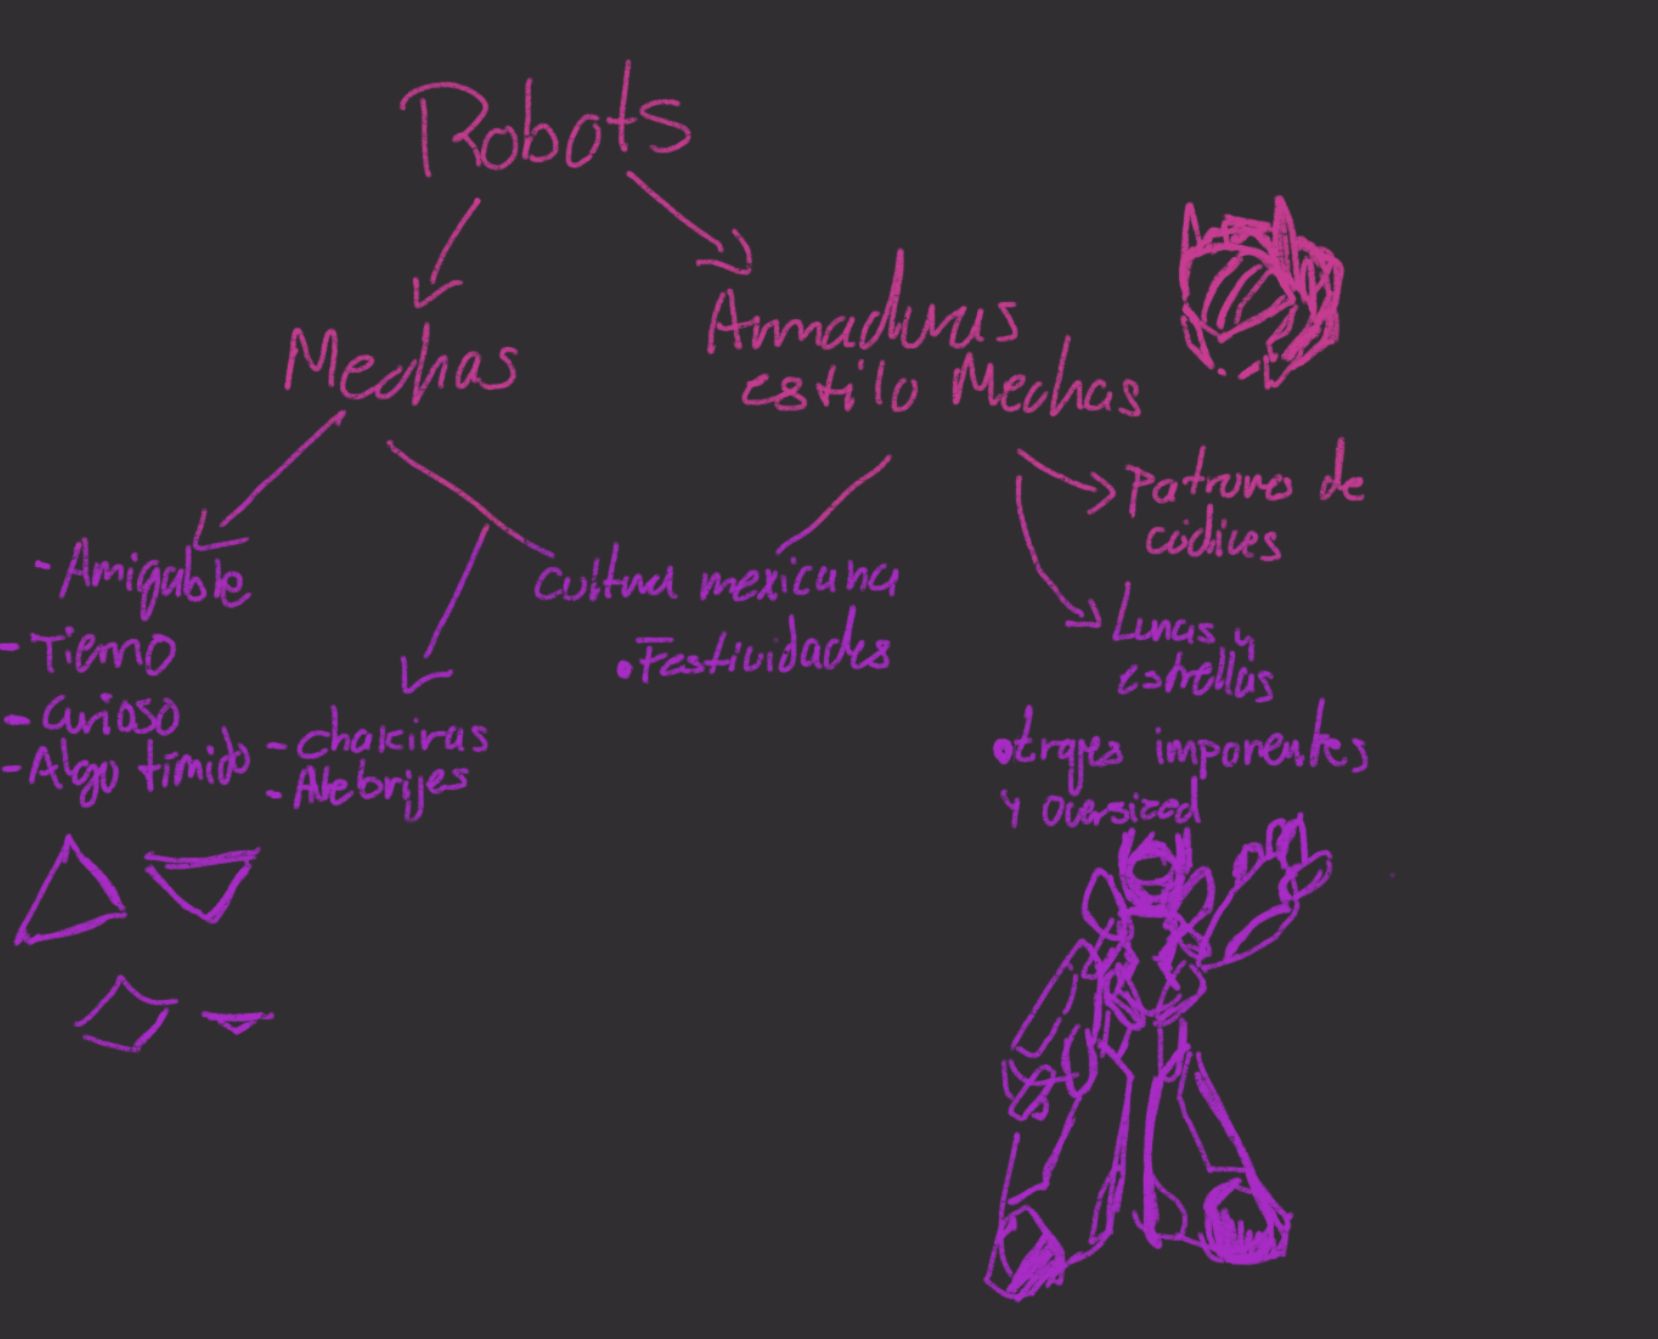 Robots
Mechas
Armaduras
estilo Mechas
- Amigable
- Tierno
- Curioso
- Algo tímido
- chakiras
- Alebrijes
Cultura mexicana
• Festividades
Patrones de
códices
Lunas y
estrellas
• trajes imponentes
y oversized